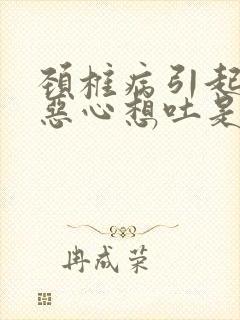 颈椎病引起
恶心想吐是
冉成荣